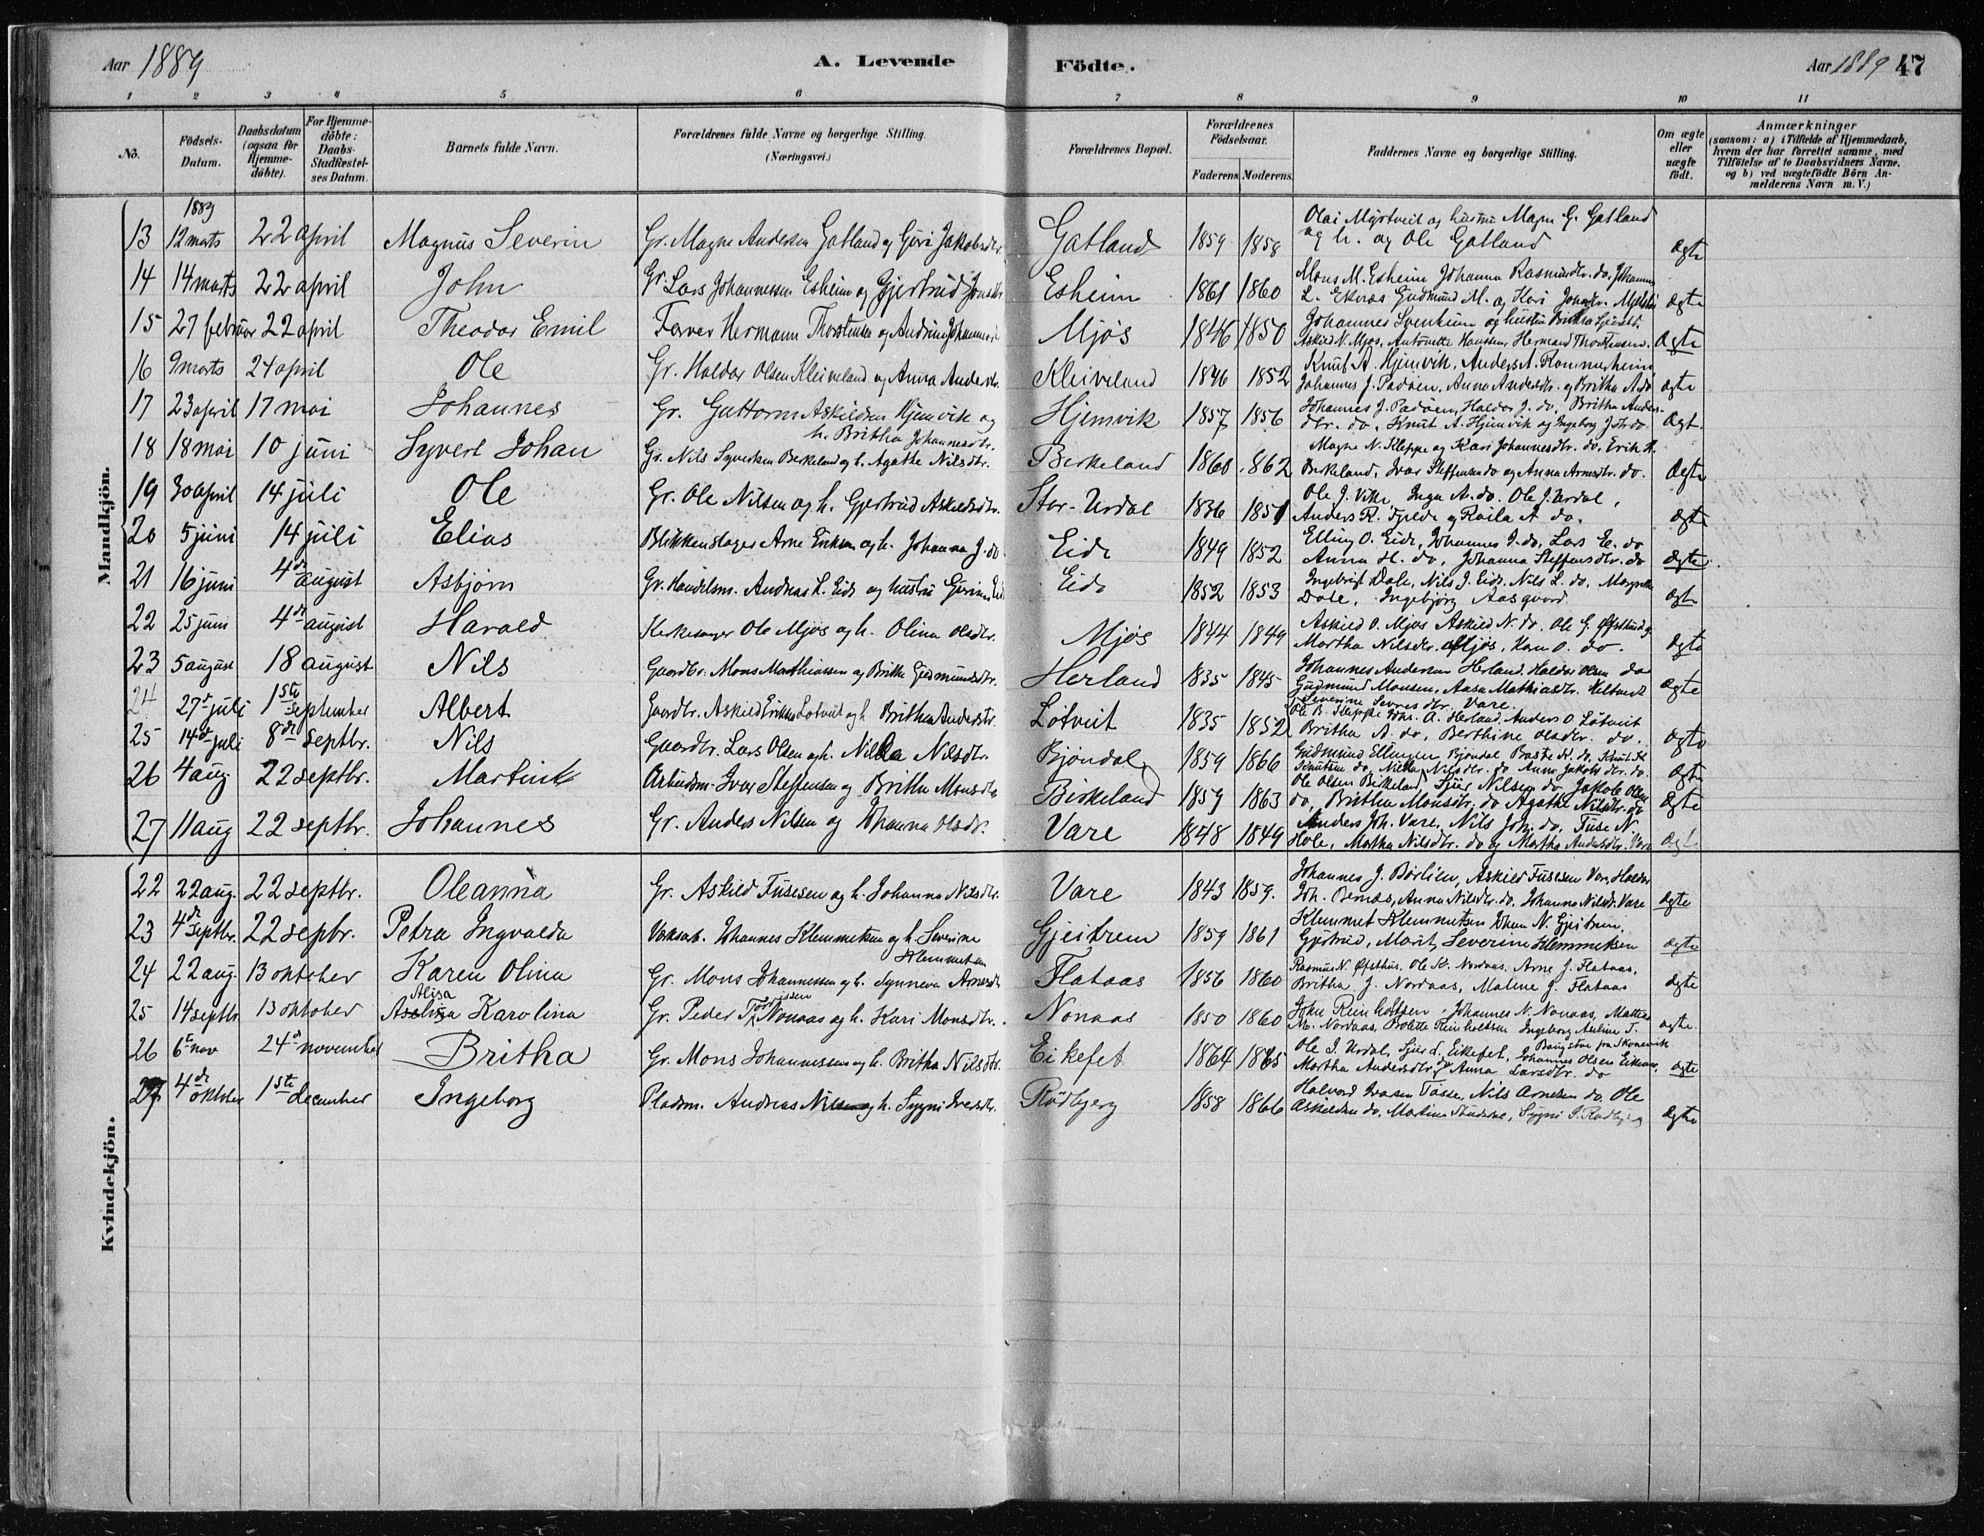 Aar 1889
A. Levende Födte.
Aar 1889 47
1 2 3 4 5 6 7 8 9 10 11
No.
Födsels-Datum.
Daabsdatum (ogsaa for Hjemme-döbte).
For Hjemme-döbte: Daabs-Stadfæstel-ses Datum.
Barnets fulde Navn.
Forældrenes fulde Navne og borgerlige Stilling. (Næringsvei.)
Forældrenes Bopæl.
Forældrenes Födselsaar.
Faderens. Moderens.
Faddernes Navne og borgerlige Stilling.
Om ægte eller uægte födt.
Anmærkninger (saasom: a) i Tilfælde af Hjemmedaab, hvem der har forrettet samme, med Tilföielse af to Daabsvidners Navne, og b) ved uægtefödte Börn An-melderens Navn m. V.)
Mandkjön.
1889
13 12 marts 22 april Magnus Severin Gr. Magne Andersen Gatland og Guri Jakobsdtr. Gatland 1859 1858 Olai Mystveit og hustru Magn G. Gatland og h. og Ole Gatland ægte
14 14 marts 22 april John Gr. Lars Johannessen Esheim og Gjertrud Jonsdtr Esheim 1861 1860 Mons M. Esheim Johanna Rasmusdtr. do. Johannes L. Eknæs Gudmund M. og Kari Jonsdtr. ægte
15 27 februar 22 april Theodor Emil Farver Hermann Thorstensen og Andrine Johannesdtr Mjøs 1846 1850 Johannes Svenheim og hustru Britha Askild N. Mjøs, Antonette Hansen Hermand Thorstensen. Ægte
16 9 marts 24 april Ole Gr. Haldor Olsen Kleiveland og Anna Andersdtr. Kleiveland 1846 1852 Knut A. Hjemvik, Anders A. Rommarheim Johannes J. Padøen, Anna Andersdtr. og Britha A. do ægte
17 23 april 17 mai Johannes Gr. Guttorm Askildsen Hjemvik og h. Britha Johannesdtr. Hjemvik 1857 1856 Johannes J. Padøen, Haldor J. do, Britha Anders-dtr. do, Knut A. Hjemvik og Ingeborg Joh. do. Ægt.
18 18 mai 10 juni Syvert Johan Gr. Nils Syvertsen Birkeland og h. Agathe Nilsdtr. Birkeland 1860 1862 Magne N. Kleppe og Kari Johannesdtr. do, Erik K. Birkeland, Ivar Steffensen do og Anna Arnesdtr. do. Ægte
19 30 april 14 juli Ole Gr. Ole Nilsen og h. Gjertrud Askildsdtr. Stor-Urdal 1836 1851 Ole J. Vike, Inga A. do. Ole J. Urdal, Anders R. Tjelde og Raila A do. ægte
20 5 juni 14 juli Elias Blikkenslager Arne Eriksen og h. Johanna J. do Eide 1849 1852 Elling O. Eide, Johannes J. do, Lars E. do Anna H. do, Johanna Steffensdtr. do ægte
21 16 juni 4de august Asbjørn Gr. Handelsm. Andreas L. Eide og hustru Gurine Eide Eide 1852 1853 Ingebrigt Dale, Nils J. Eide. Nils L. do. Margrethe Dale, Ingebjørg Aasgaard. ægte
22 25 juni 4de august Harald Kirkesanger Ole Mjøs og h. Olina Olsdtr. Mjøs 1844 1849 Askild O. Mjøs Askild N. do. Ole G. Øfsthus og Martha Nilsdtr. Mjøs, Karn O. do. ægte
23 5 august 18 august Nils Gaardbr. Mons Mathiassen og Britha Gudmundsdtr. Herland 1835 1845 Johannes Andersen Herland. Haldor Olsen do Gudmund Monsen, Aasa Mathiasdtr. Severine Sevresdtr. Vare. ægte
24 27de juli 1ste september Albert Gaardbr. Askild Eriksen Løtveit og h. Britha Andersdtr. Løtveit 1835 1852 Ole B. Kleppe Johs. A. Herland, Anders O. Løtveit Britha A. do, Berthine Olsdtr. do. ægte
25 14de juli 8de septbr. Nils Gaardbr. Lars Olsen og h. Nilla Nilsdtr. Bjøndal 1859 1866 Gudmund Ellingsen Bjøndal Baste K. do, Knut Knutsen do, Nilla Nilsdtr. do Anna Jakobsdtr. do. ægte
26 4 aug. 22 septbr. Martin Arbeidsm. Ivar Steffensen og Britha Monsdtr Birkeland 1859 1863 Ole Olsen Birkeland, Sjur Nilsen do, Jakob Olsen do, Britha Monsdtr. do Agatha Nilsdtr. do ægte
27 11 aug 22 septbr. Johannes Gr. Anders Nilsen og Johanna Olsdr. Vare 1848 1849 Anders Joh. Vare, Nils Joh. do. Fuse N. Hole, Martha Nilsdtr. do og Martha Andersdtr. Vare ægt
Kvindekjön.
22 22 aug. 22 septbr. Oleanna Gr. Askild Fusesen og h. Johanna Nilsdtr. Vare 1843 1859. Johannes J. Børlien, Askild Fusesen Vare, Haldor Joh. Bernæs, Anna Nilsdtr. do. Johanna Nilsd. Vare ægte
23 4de septbr. 22 sepbr. Petra Ingvalda Vaksab. Johannes Klemmetsen og h. Severine Klemmetsen Gjeitrem 1859 1861 Klemmet Klemmetsen Johan N. Gjeitrem, Gjertrud, Marit, Severine Klemmetsen ægte
24 22 aug. 13 oktober Karen Olina Gr. Mons Johannessen og h. Synneva Arnesdtr Flataas 1856 1860 Rasmus N. Øfsthus, Ole K. Nordaas, Arne J. Flataas, Britha J. Nordaas, Malene J. Flataas ægte
25 14 septbr 13 oktober Alisa Karolina Gr. Peder Nonaas og h. Kari Monsdtr. Nonaas 1850 1860 John Reinholtsen, Johannes N. Nonaas, Mathias M. Nordaas, Bolette Reinholtsen Ingeborg Auline T. ægte.
26 6te nov 24de november Britha Gr. Mons Johannessen og h. Britha Nilsdtr. Eikefet 1864 1865 Ole I. Urdal, Sjur d. Eikefet, Johannes Olsen Martha Andersdtr. Anna Larsdtr. do ægte
27 4de oktober 1ste december Ingeborg Pladsm. Andreas Nilsen og h. Sygni Iversdtr. Rødbjerg 1858 1866 Halvord Ivarsen Tasse, Nils Arnesen do, Ole Askildsen do, Martine Sygni I. Rødbjerg ægte